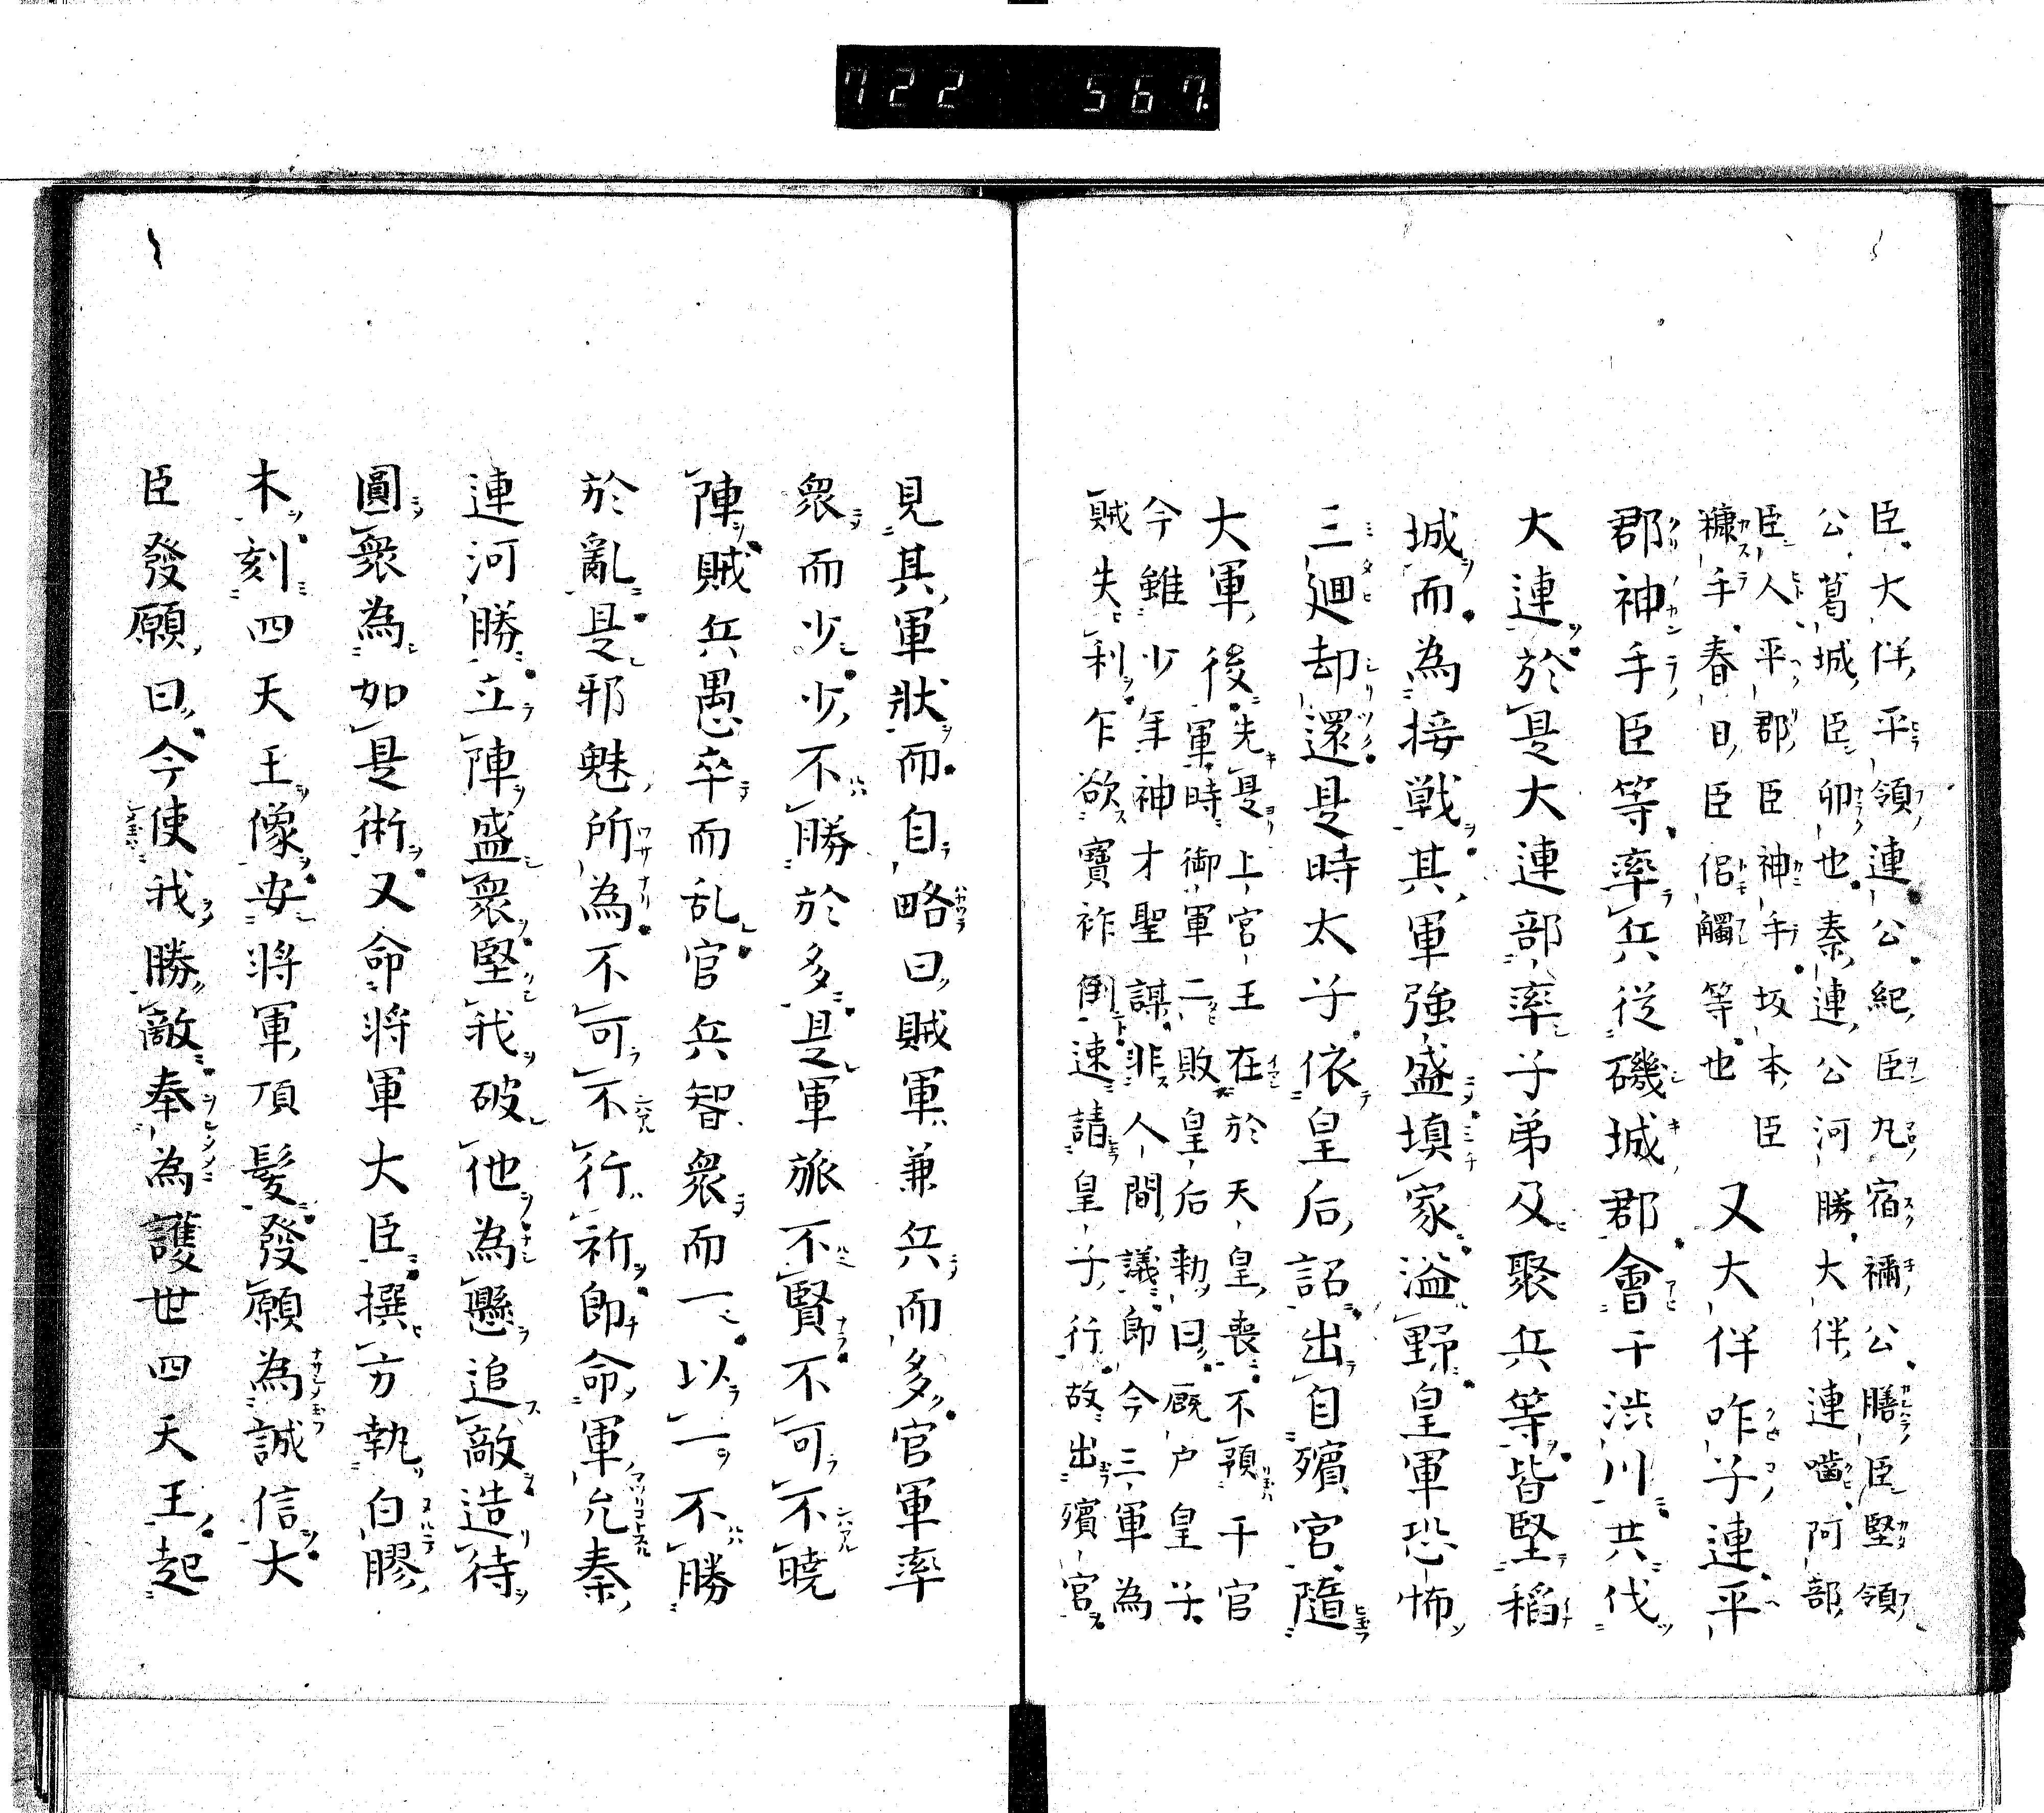 722 567.
臣大伴平領連公紀臣九宿禰公膳臣堅領
公葛城臣卯也秦連公河勝大伴連嚙阿部
臣人平郡臣神手坂本臣
糠手春日臣侶觸等也
又大伴咋子連平
郡神手臣等率兵従磯城郡會于渋川共伐
大連於是大連部率子弟及聚兵等皆堅稻
城而為接戦其軍強盛填家溢野皇軍恐怖
三廻却還是時太子依皇后詔出自殯宮隨
大軍後
先是上官王在於天皇喪不預于官
軍時御軍二敗皇后勅曰厩户皇子
今雖少年神才聖謀非人間議即今三軍為
賊失利乍欲寶祚倒速請皇子行故出殯宮
見其軍狀而自略曰賊軍兼兵而多官軍率
衆而少少不勝於多是軍旅不賢不可不曉
陣賊兵愚卒而乱官兵智衆而一以一不勝
於亂是邪魅所為不可不行祈即命軍允秦
連河勝立陣盛衆堅我破他為懸追敵造待
圓衆為如是術又命将軍大臣撰方執白膠
木刻四天王像安将軍頂髪發願為誠信大
臣發願曰今使我勝敵奉為護世四天王起